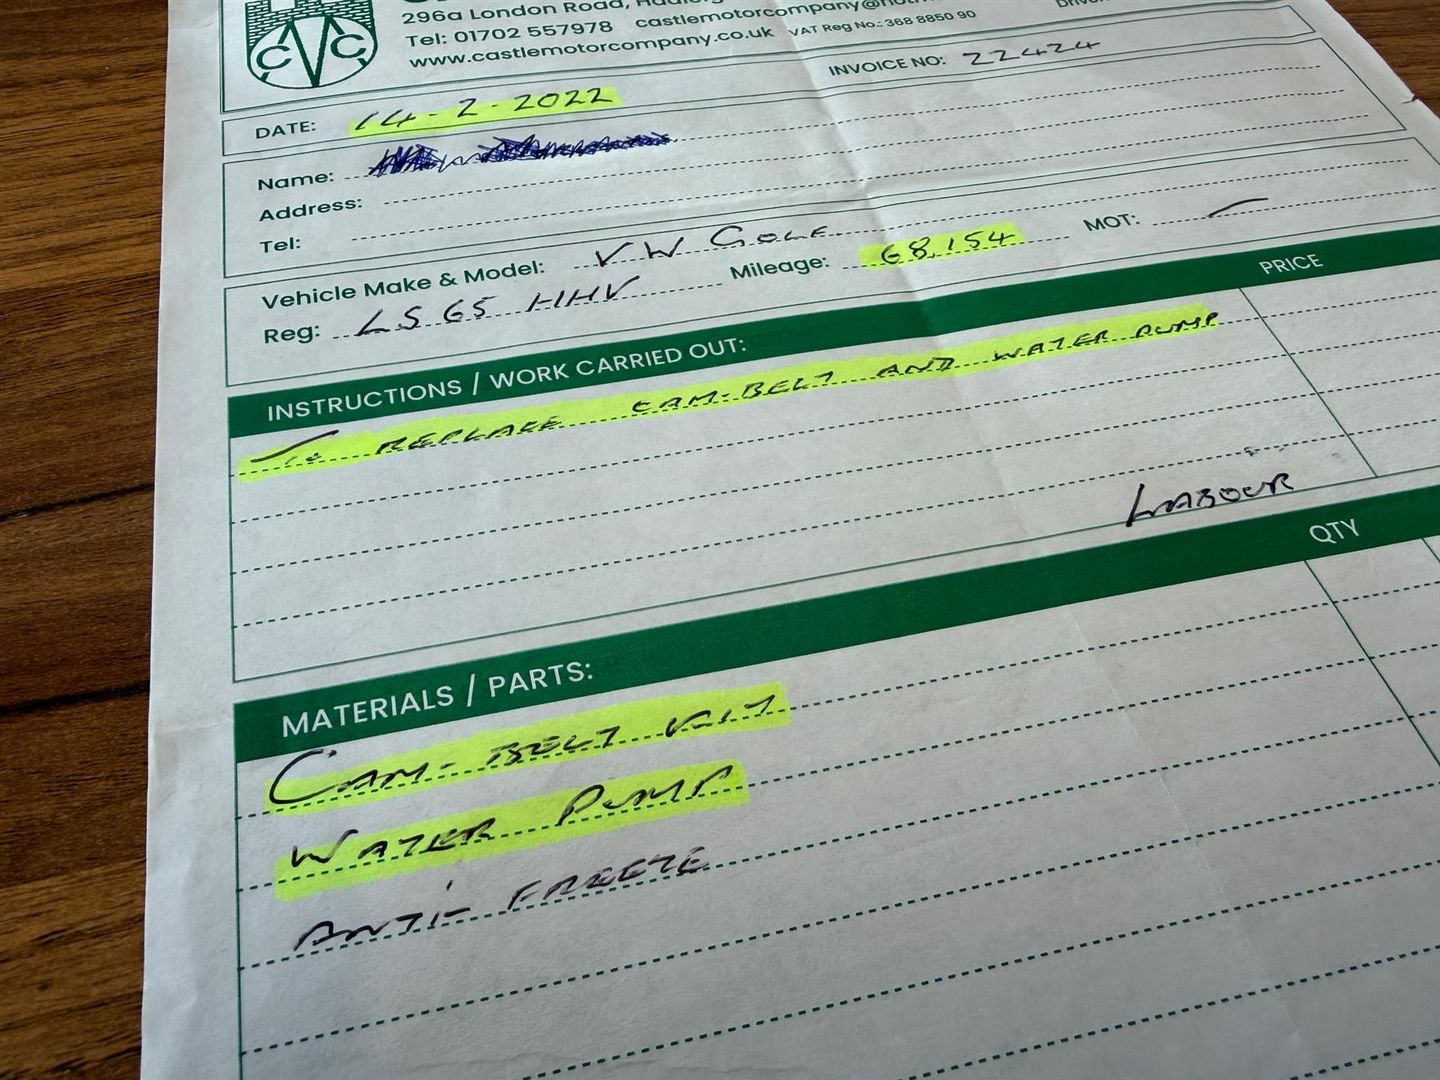 CVC
296a London Road,
Tel: 01702 557978 castlemotorcompany@
www.castlemotorcompany.co.uk VAT Reg No.: 368 8850 90
INVOICE NO: 22424
DATE: 14-2-2022
Name:
Address:
Tel:
Vehicle Make & Model: VW GOLF
Reg: LS65 HHV Mileage: 68,154 MOT: —
INSTRUCTIONS / WORK CARRIED OUT: PRICE
To REPLACE CAM-BELT AND WATER PUMP
LABOUR
MATERIALS / PARTS: QTY
CAM-BELT KIT
WATER PUMP
ANTI-FREEZE